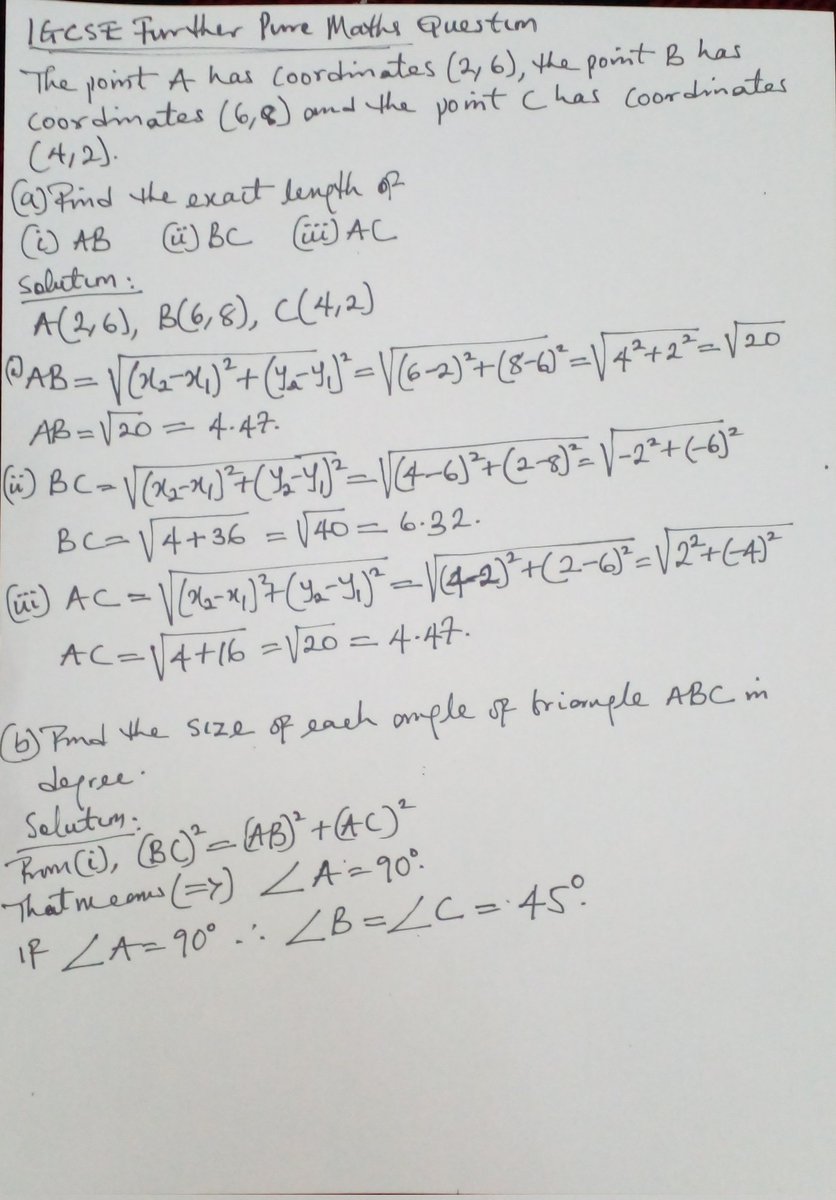 IGCSE Further Pure Maths Question
The point A has coordinates (2,6), the point B has
coordinates (6,8) and the point C has coordinates
(4,2).
(a) Find the exact length of
(i) AB (ii) BC (iii) AC
Solution:
A(2,6), B(6,8), C(4,2)
(i) AB = √(x₂-x₁)²+(y₂-y₁)² = √(6-2)²+(8-6)² = √4²+2² = √20
AB = √20 = 4.47.
(ii) BC = √(x₂-x₁)²+(y₂-y₁)² = √(4-6)²+(2-8)² = √-2²+(-6)²
BC = √4+36 = √40 = 6.32.
(iii) AC = √(x₂-x₁)²+(y₂-y₁)² = √(4-2)²+(2-6)² = √2²+(-4)²
AC = √4+16 = √20 = 4.47.
(b) Find the size of each angle of triangle ABC in
degree.
Solution:
From (i), (BC)² = (AB)² + (AC)²
That means (=>) ∠A = 90°.
IF ∠A = 90° ∴ ∠B = ∠C = 45°.